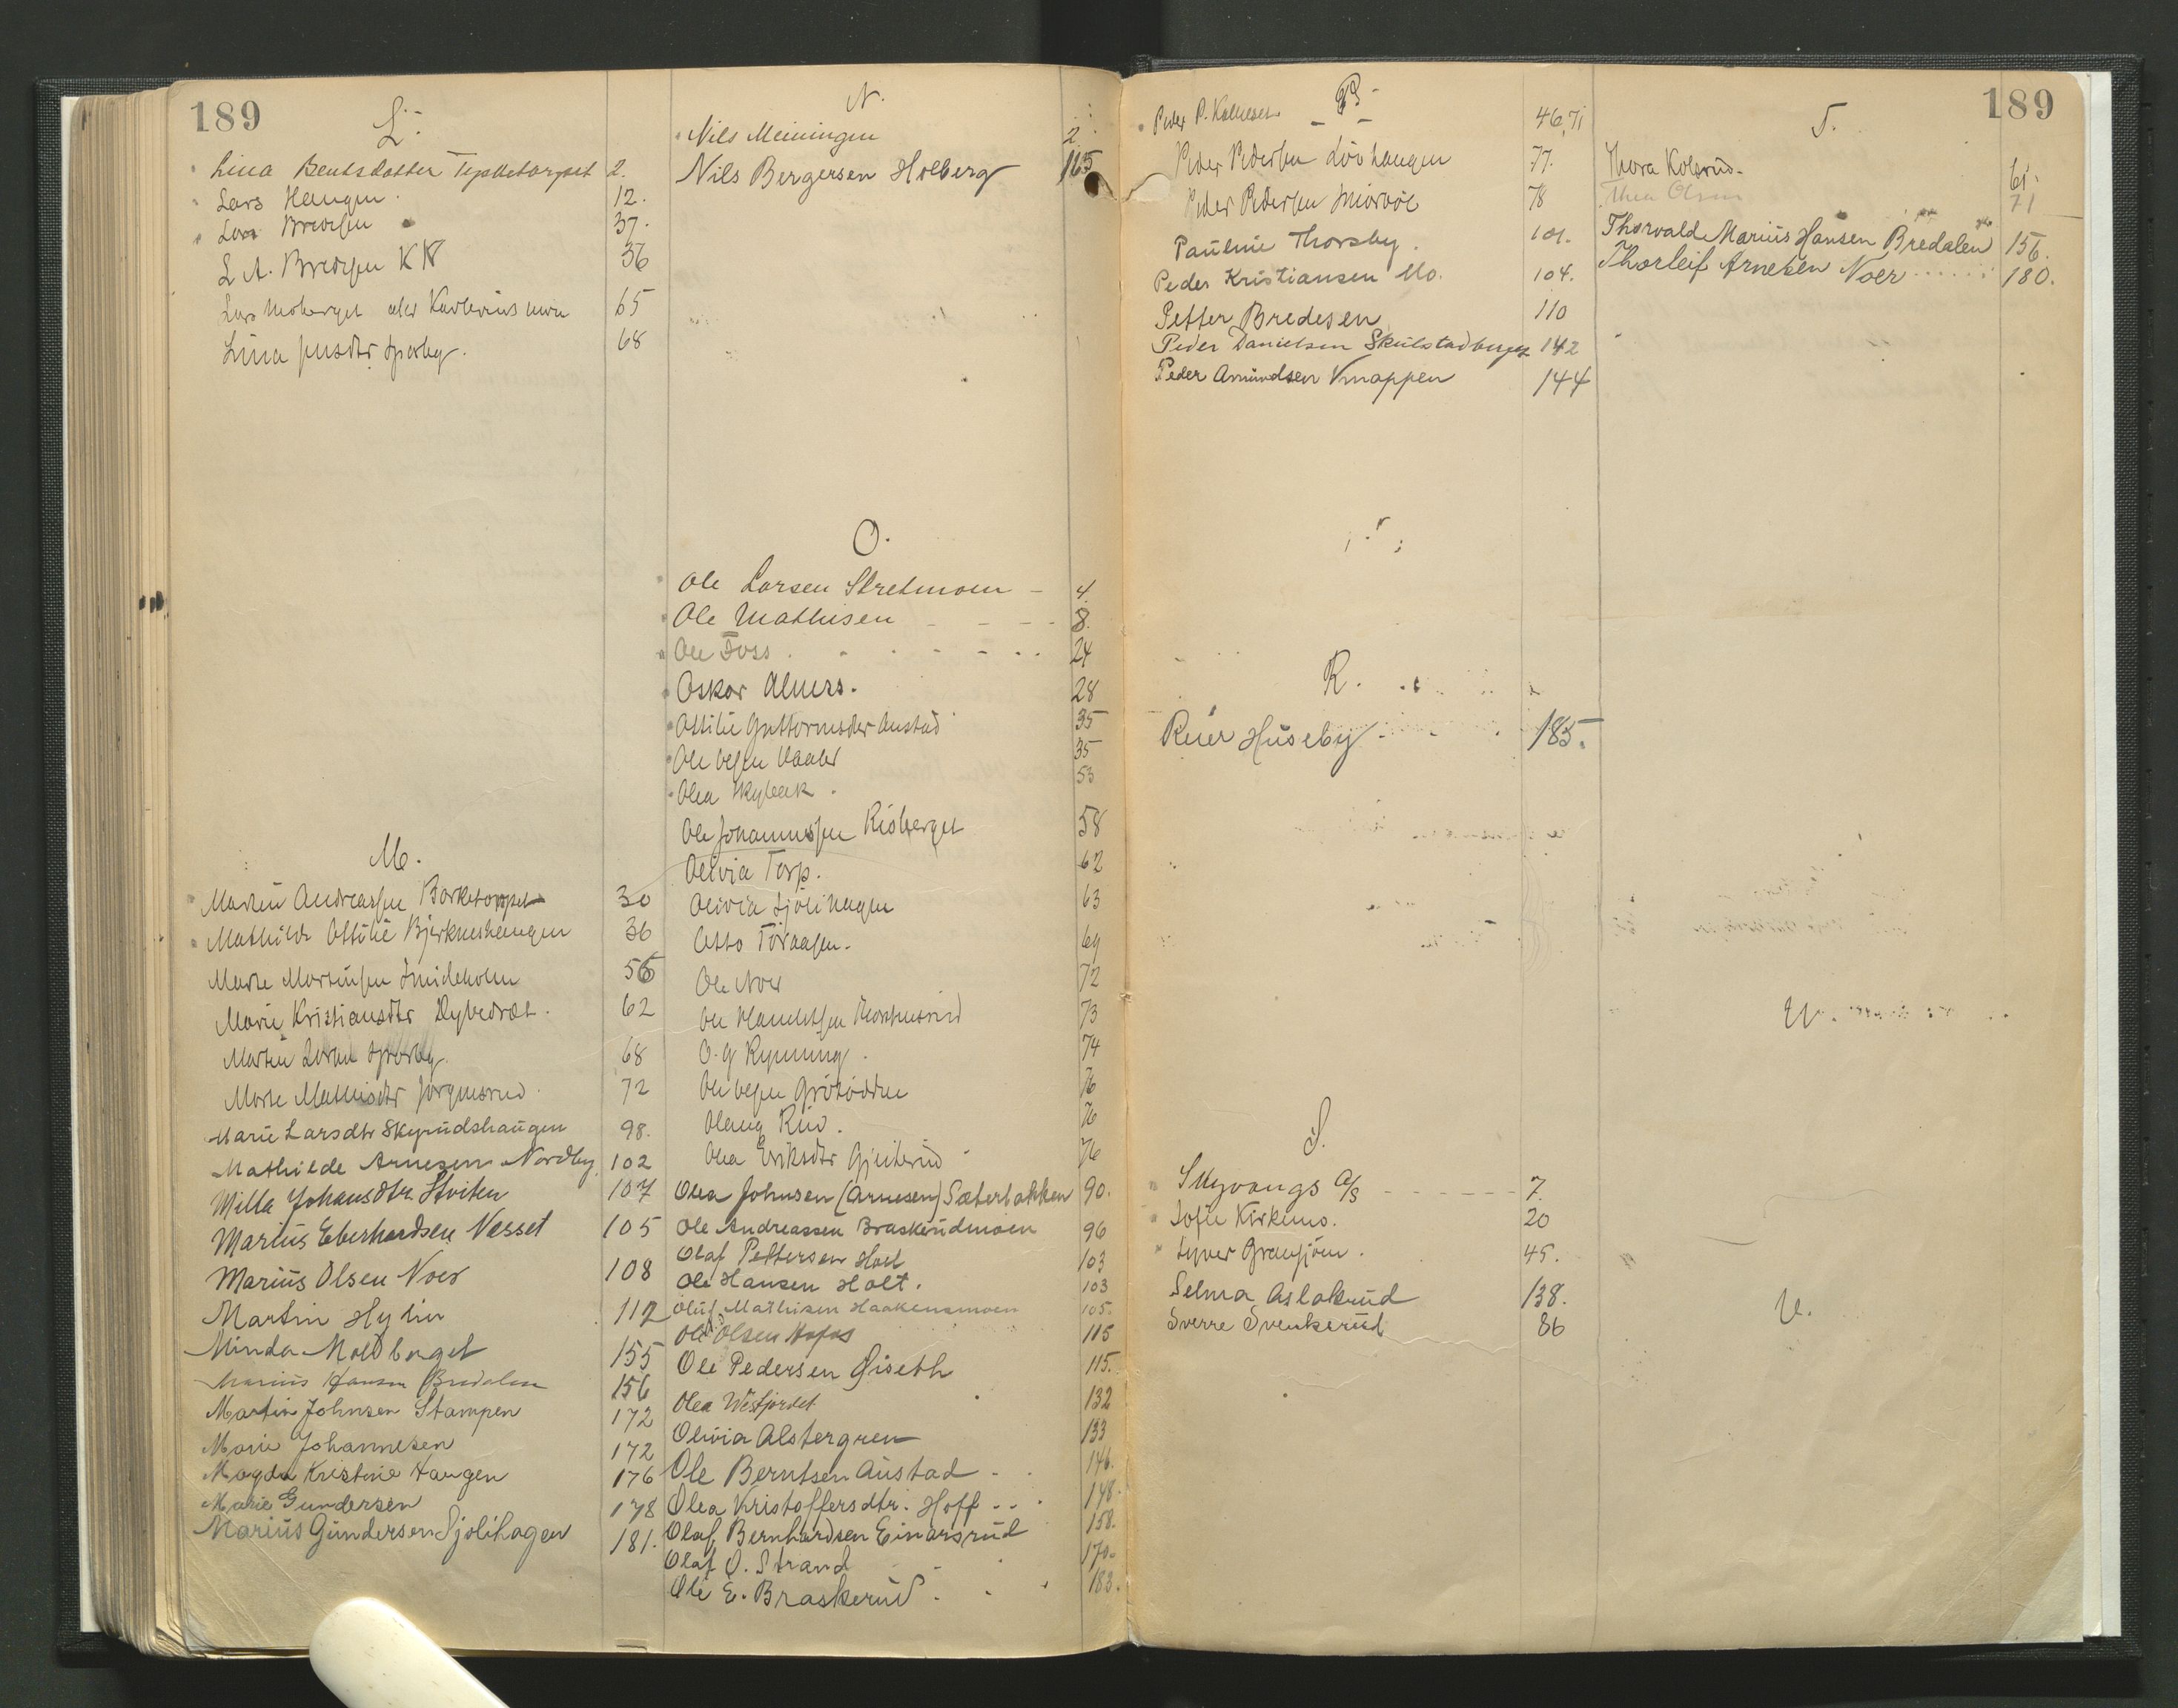 189
L.
Lina Berntsdatter 2.
Lars Haugen. 12.
Lars Bredesen 37.
L A. Bredesen KN 36
Lars Moberget eller 65
Lina Jensdtr Sparby. 68
M.
Martin Andreassen Borketoppet 30
Mathilde Ottilie Bjerkneshaugen 36
Marte Martinsen Smideholm 56
Marie Kristiansdtr Dybedræt. 62
Martin Sparby. 68
Marte Mathisdtr Jørgensrud. 72
Marie Larsdtr Skyrudshaugen 98.
Mathilde Arnesen Nordby 102
Milla Johansdtr. Hviten 107
Marius Eberhardsen Nesset 105
Marius Olsen Noer 108
Martin Hylin 112
Minda Moldberget 155
Marius Hansen Bredalen 156
Martin Johnsen Stampen 172
Marie Johannesen 172
Magda Kristine Haugen 176
Marie Gundersen 178
Marius Gundersen Sjølihagen 181.
N.
Nils Meiningen 2
Nils Bergersen Holberg 165
O.
Ole Larsen Stretmoen - 4.
Ole Mathisen - - - - 8.
Ole Foss. 24
Oskar Almers. 28
Ottilie Guttormsdtr Austad 35
Ole Olsen Vaaler 35
Olea Skybak. 53
Ole Johannessen Risberget 58
Olivia Torp. 62
Olivia Sjølihagen 63
Otto Toraasen. 69
Ole Noer 72
Ole 73
O. G Rynning. 74
Ole Olsen Grøtødden 76
Olaug Rud. 76
Olea Eriksdtr Gjeiterud 76
Olea Johnsen (Arnesen) Sæterbakken 90.
Ole Andreassen Braskerudmoen 96
Olaf Pettersen Hoel 103
Ole Hansen Holt. 103
Oluf Mathisen Haakensmoen 105.
Ole Olsen Hofas 115
Ole Pedersen Giseth 115.
Olea Westjordet 132
Olivia Alstergren 133
Ole Berntsen Austad - . 146.
Olea Kristoffersdtr. Hoff - - . 148.
Olaf Bernhardsen Einarsrud 158.
Olaf O. Strand 170.
Ole E. Braskerud. 183.
189
P
Peder P. Kalneset 46,71
Peder Pedersen Løvhaugen 77.
Peder Pedersen 78
Pauline Thorsby. 101.
Peder Kristiansen Mo. 104.
Petter Bredesen 110
Peder Danielsen Skulstadberget 142
Peder Amundsen Knappen 144
R.
Reier Huseby 185.
S.
Skyvangs A/S - - - - - - 7.
Sofie Kirkemo. 20
Syver Gransjøen. 45.
Selma Aslakrud 138.
Sverre Svenkerud 86
T.
Thora Kolsrud. 61.
Thea Olsen 71
Thorvald Marius Hansen Bredalen 156.
Thorleif Arnesen Noer 180.
U.
V.